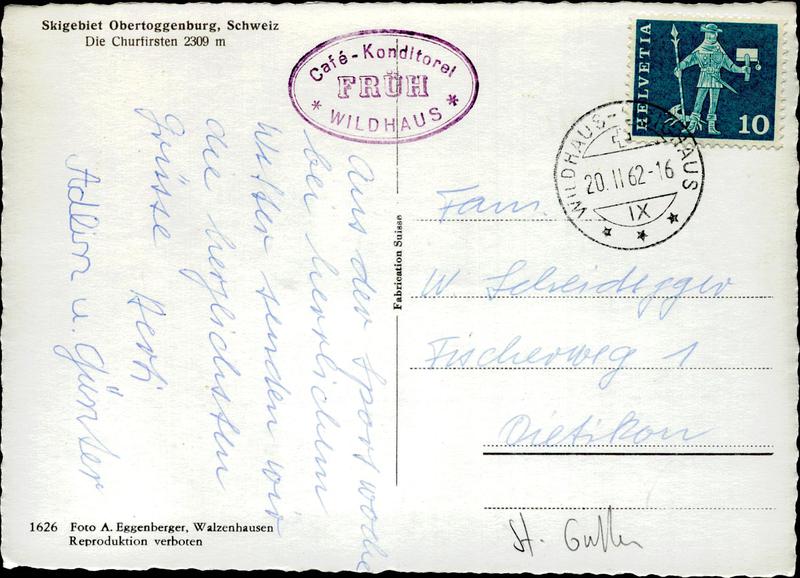 Skigebiet Obertoggenburg, Schweiz
Die Churfirsten 2309 m
Café-Konditorei
FRÜH
* WILDHAUS *
HELVETIA
10
WILDHAUS-WILDHAUS
20.II.62-16
IX
Aus der Sportwoche
bei herrlichem
Wetter senden wir
die herzlichsten
Grüsse Herti
Adlin u. Günter
Fabrication Suisse
Fam.
W Scheidegger
Fischerweg 1
Dietikon
St.
1626 Foto A. Eggenberger, Walzenhausen
Reproduktion verboten